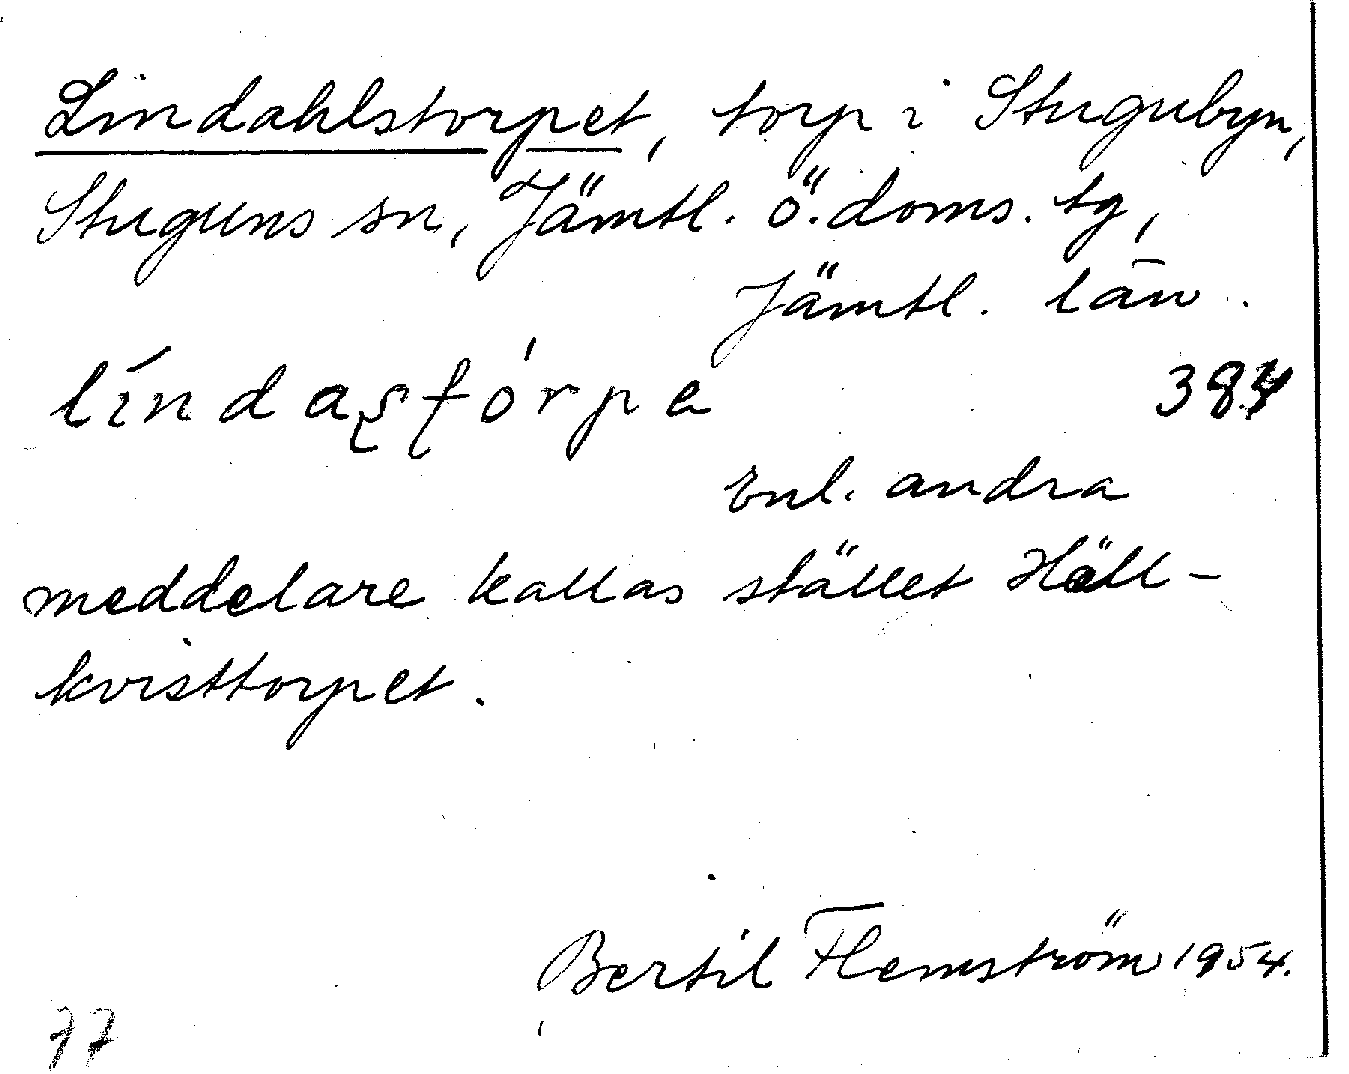 Lindahlstorpet, torp i Stugubyn,
Stuguns sn, Jämtl. ö. doms. tg,
Jämtl. län.
líndaʂʈórpa 384
Enl. andra
meddelare kallas stället Häll-
kvisttorpet.
Bertil Flemström 1954.
77